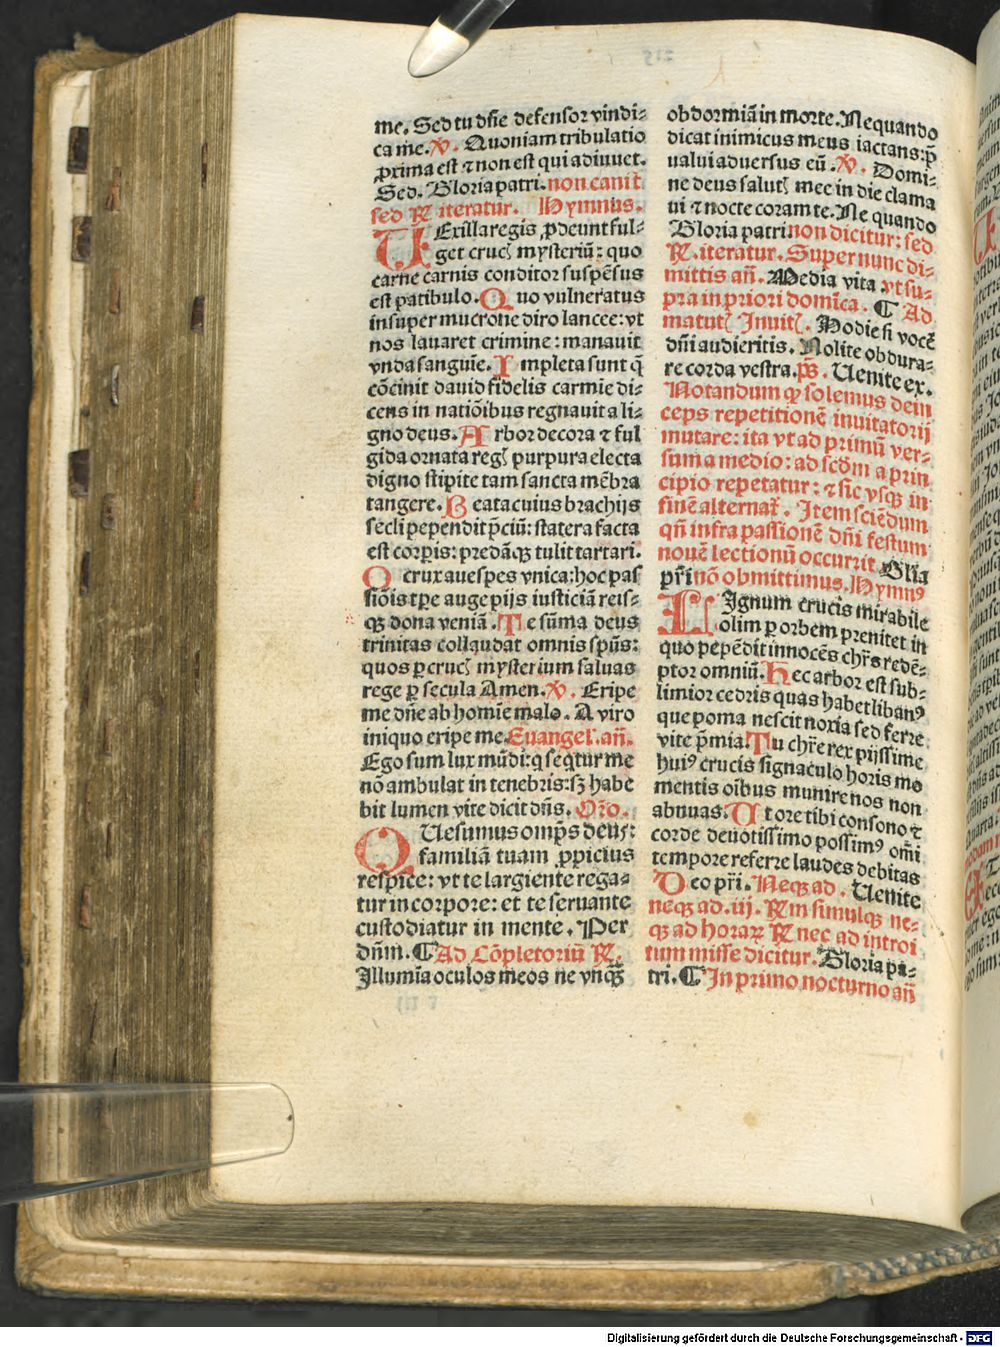 me. Sed tu dñe defensor vindi⸗
ca me. ꝟ. Quoniam tribulatio
ꝓxima est ⁊ non est qui adiuuet.
Sed. Gloria patri. non canit̃
sed ꝶ iteratur. Hymnus.
UExilla regis ꝓdeunt ful⸗
get crucꝭ mysteriũ: quo
carne carnis conditor suspẽsus
est patibulo. Quo vulneratus
insuper mucrone diro lancee: vt
nos lauaret crimine: manauit
vnda sanguĩe. Impleta sunt q̃
cõcinit dauid fidelis carmie di⸗
cens in natiõibus regnauit a li⸗
gno deus. Arbor decora ⁊ ful
gida ornata regꝭ purpura electa
digno stipite tam sancta mẽbra
tangere. Beata cuius brachijs
secli pependit p̃ciũ: statera facta
est corꝑis: predãqꝫ tulit tartari.
O crux aue spes vnica: hoc pas
siõis tꝑe auge pijs iusticiã reis⸗
qꝫ dona veniã. Te sũma deus
trinitas collaudat omnis spũs:
quos ꝑ crucꝭ mysterium saluas
rege ꝑ secula Amen. ꝟ. Eripe
me dñe ab homĩe malo. A viro
iniquo eripe me. Euangel. añ.
Ego sum lux mũdi: q seq̃tur me
nõ ambulat in tenebris: sꝫ habe
bit lumen vite dicit dñs. Orõ.
QUesumus omp̃s deus:
familiã tuam ꝓpicius
respice: vt te largiente rega⸗
tur in corpore: et te seruante
custodiatur in mente. Per
dñm. ¶ Ad Cõpletoriũ ꝶ.
Illumĩa oculos meos ne vnqꝫ̃
obdormiã in morte. Ne quando
dicat inimicus meus iactans: p̃
ualui aduersus eũ. ꝟ. Domi⸗
ne deus salutꝭ mee in die clama
ui ⁊ nocte coram te. Ne quando
Gloria patri non dicitur: sed
ꝶ. iteratur. Super nunc di⸗
mittis añ. Media vita. vt su⸗
pra in priori domĩca. ¶ Ad
matutꝭ Inuitꝭ. Hodie si vocẽ
dñi audieritis. Nolite obdura⸗
re corda vestra. p̃s. Uenite ex.
Notandum ꝙ solemus dein
ceps repetitionẽ inuitatorij
mutare: ita vt ad primũ ver⸗
sum a medio: ad scd̃m a prin
cipio repetatur: ⁊ sic vsqꝫ in
finẽ alternat̃. Item sciẽdum
qñ infra passionẽ dñi festum
nouẽ lectionũ occurrit Glia
pr̃i nõ obmittimus. Hymnꝰ
LIgnum crucis mirabile
olim ꝑ orbem prenitet in
quo pepẽdit innocẽs chr̃s redẽ⸗
ptor omniũ. Hec arbor est sub⸗
limior cedris quas habet libanꝰ
que poma nescit noxia sed ferre
vite p̃mia. Tu chr̃e rex pijssime
huiꝰ crucis signaculo horis mo
mentis oĩbus munire nos non
abnuas. Ut ore tibi consono ⁊
corde deuotissimo possimꝰ om̃i
tempore referre laudes debitas
Deo pr̃i. Neqꝫ ad. Uenite
neqꝫ ad. iij. ꝶm simulqꝫ ne⸗
qꝫ ad horaꝝ ꝶ nec ad introi
tum misse dicitur. Gloria pa⸗
tri. ¶ In primo nocturno añ
Digitalisierung gefördert durch die Deutsche Forschungsgemeinschaft - DFG